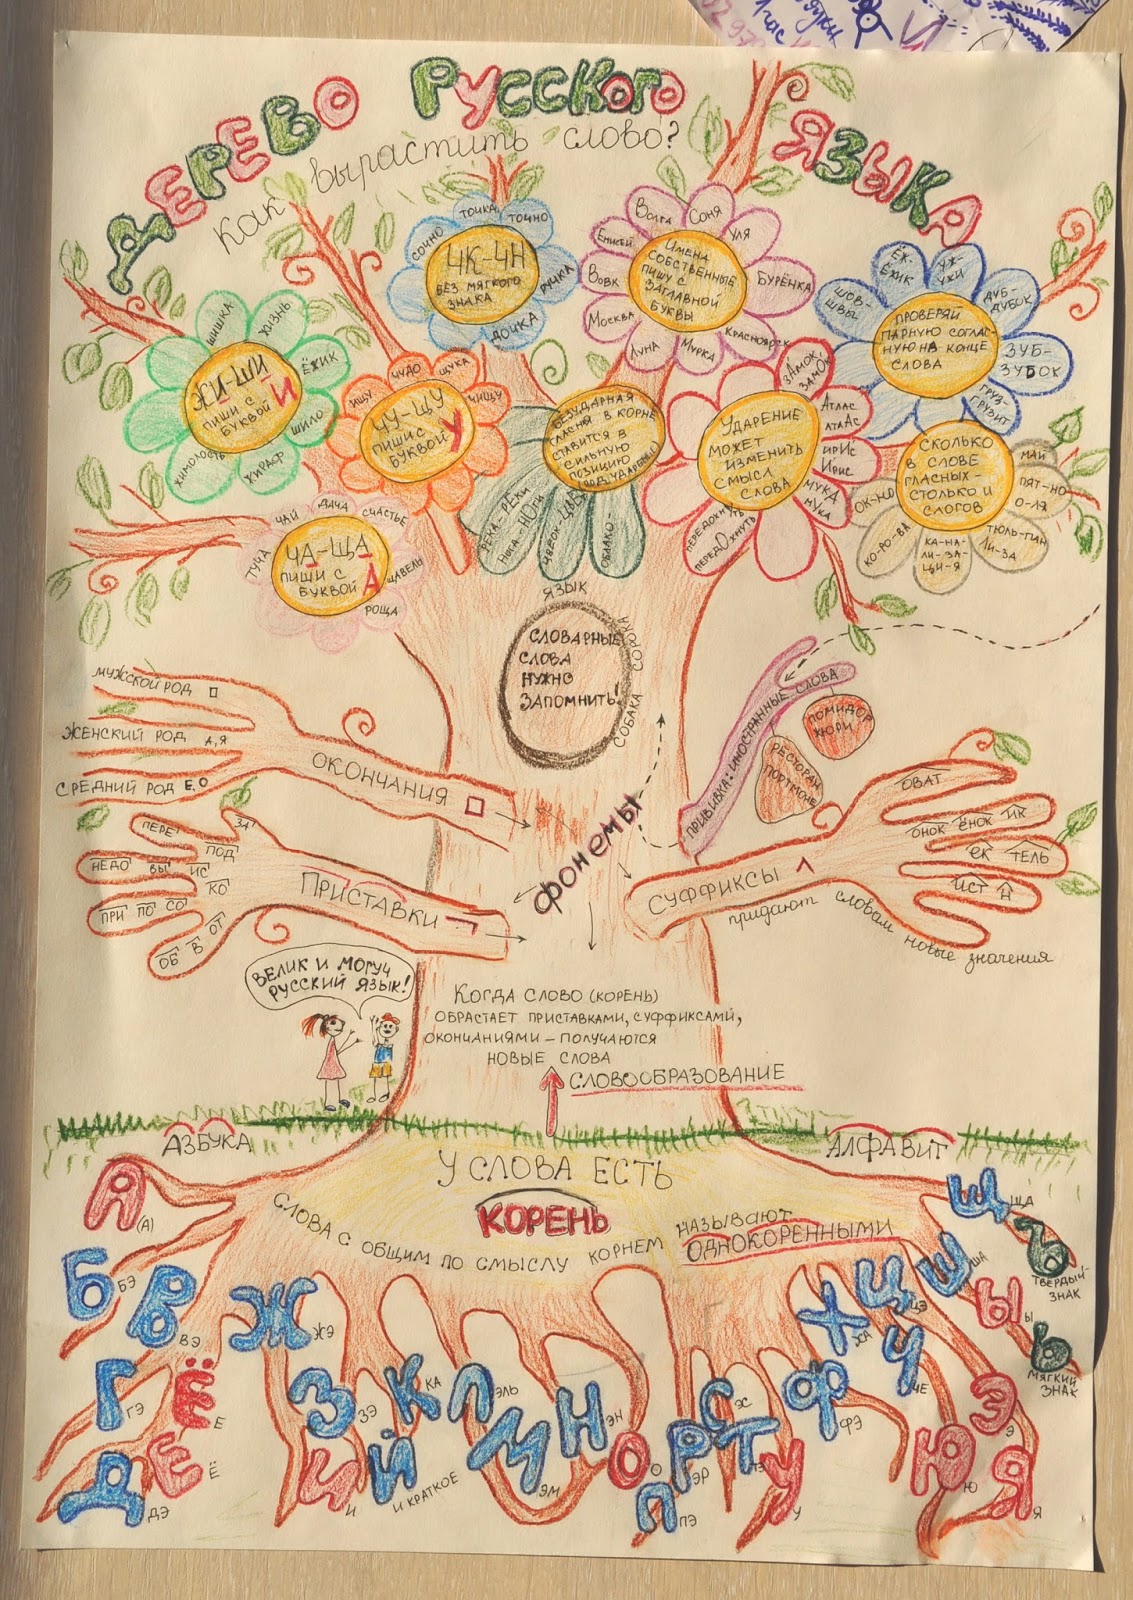 ДЕРЕВО РУССКОГО ЯЗЫКА
Как вырастить слово?
ЖИ-ШИ
ПИШИ С
БУКВОЙ И
ШИШКА
ЖИЗНЬ
ЁЖИК
ШИЛО
ЖИРАФ
ЖИМОЛОСТЬ
ЧУ-ЩУ
ПИШИ С
БУКВОЙ У
ИЩУ
ЧУДО
ЩУКА
ЧИЩУ
ЧА-ЩА
ПИШИ С
БУКВОЙ А
ТУЧА
ЧАЙ
ДАЧА
СЧАСТЬЕ
ЩАВЕЛЬ
РОЩА
ЧК-ЧН
БЕЗ МЯГКОГО
ЗНАКА
СОЧНО
ТОЧКА
ТОЧНО
РУЧКА
ДОЧКА
ИМЕНА
СОБСТВЕННЫЕ
ПИШУ С
ЗАГЛАВНОЙ
БУКВЫ
Волга
Соня
Уля
БУРЁНКА
Красноярск
Мурка
Луна
Москва
Вовк
Енисей
БЕЗУДАРНАЯ
ГЛАСНАЯ В КОРНЕ
СТАВИТСЯ В
СИЛЬНУЮ
ПОЗИЦИЮ
(ПОД УДАРЕНИЕ)
РЕКА-РЕКИ
НОГА-НОГИ
ОБЛАКО-
УДАРЕНИЕ
МОЖЕТ
ИЗМЕНИТЬ
СМЫСЛ
СЛОВА
ЗАМОК,
ЗАМОК
АТЛАС
АТЛАС
ИРИС
ИРИС
МУКА
МУКА
ПЕРЕДОХНУТЬ
ПЕРЕДОХНУТЬ
ПРОВЕРЯЙ
ПАРНУЮ СОГЛАС-
НУЮ НА КОНЦЕ
СЛОВА
ШОВ-
ШВЫ
ЁЖ-
ЁЖИК
УЖ-
УЖИ
ДУБ-
ДУБОК
ЗУБ-
ЗУБОК
ГРУЗ-
ГРУЗИТ
СКОЛЬКО
В СЛОВЕ
ГЛАСНЫХ-
СТОЛЬКО И
СЛОГОВ
МАЙ
ПЯТ-НО
О-ЛЯ
ТЮЛЬ-ПАН
ЛИ-ЗА
КА-НА-
ЛИ-ЗА-
ЦИ-Я
КО-РО-ВА
ОК-НО
ЯЗЫК
СОРОКА
СОБАКА
СЛОВАРНЫЕ
СЛОВА
НУЖНО
ЗАПОМНИТЬ!
МУЖСКОЙ РОД
ЖЕНСКИЙ РОД А,Я
СРЕДНИЙ РОД Е,О
ОКОНЧАНИЯ
ПЕРЕ
ЗА
ПОД
НЕДО
ВЫ
ИС
КО
ПРИ
ПО
СО
ОБ
В
ОТ
ПРИСТАВКИ
фонемы
ПРИВИВКА: ИНОСТРАННЫЕ СЛОВА
ПОМИДОР
ЖЮРИ
РЕСТОРАН
ПОРТМОНЕ
СУФФИКСЫ
ОВАТ
ОНОК
ЁНОК
ИК
ЕК
ТЕЛЬ
ИСТ
Л
придают словам новые значения
ВЕЛИК И МОГУЧ
РУССКИЙ ЯЗЫК!
КОГДА СЛОВО (КОРЕНЬ)
ОБРАСТАЕТ ПРИСТАВКАМИ, СУФФИКСАМИ,
ОКОНЧАНИЯМИ – ПОЛУЧАЮТСЯ
НОВЫЕ СЛОВА
СЛОВООБРАЗОВАНИЕ
АЗБУКА
АЛФАВИТ
У СЛОВА ЕСТЬ
КОРЕНЬ
СЛОВА С ОБЩИМ ПО СМЫСЛУ КОРНЕМ НАЗЫВАЮТ
ОДНОКОРЕННЫМИ
Я (А)
Б БЭ
В ВЭ
Г ГЭ
Д ДЭ
Ё Е
Е Ё
Ж ЖЭ
З ЗЭ
И И
Й И КРАТКОЕ
К КА
Л ЭЛЬ
М ЭМ
Н ЭН
О О
П ПЭ
Р ЭР
С ЭС
Т ТЭ
У У
Ф ФЭ
Х ХА
Ц ЦЭ
Ч ЧЕ
Ш ША
Щ ЩА
Ъ ТВЕРДЫЙ
ЗНАК
Ы Ы
Ь МЯГКИЙ
ЗНАК
Э Э
Ю Ю
Я Я